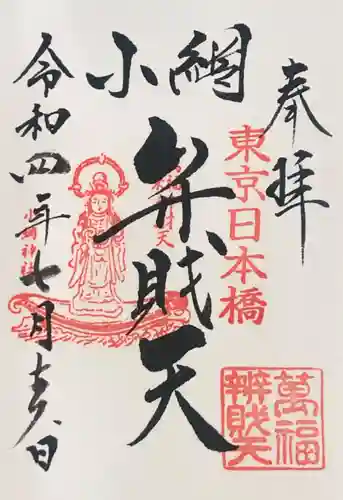 奉拝
東京日本橋
小網
弁財天
萬福
辨財天
小網神社
令和四年七月十五日